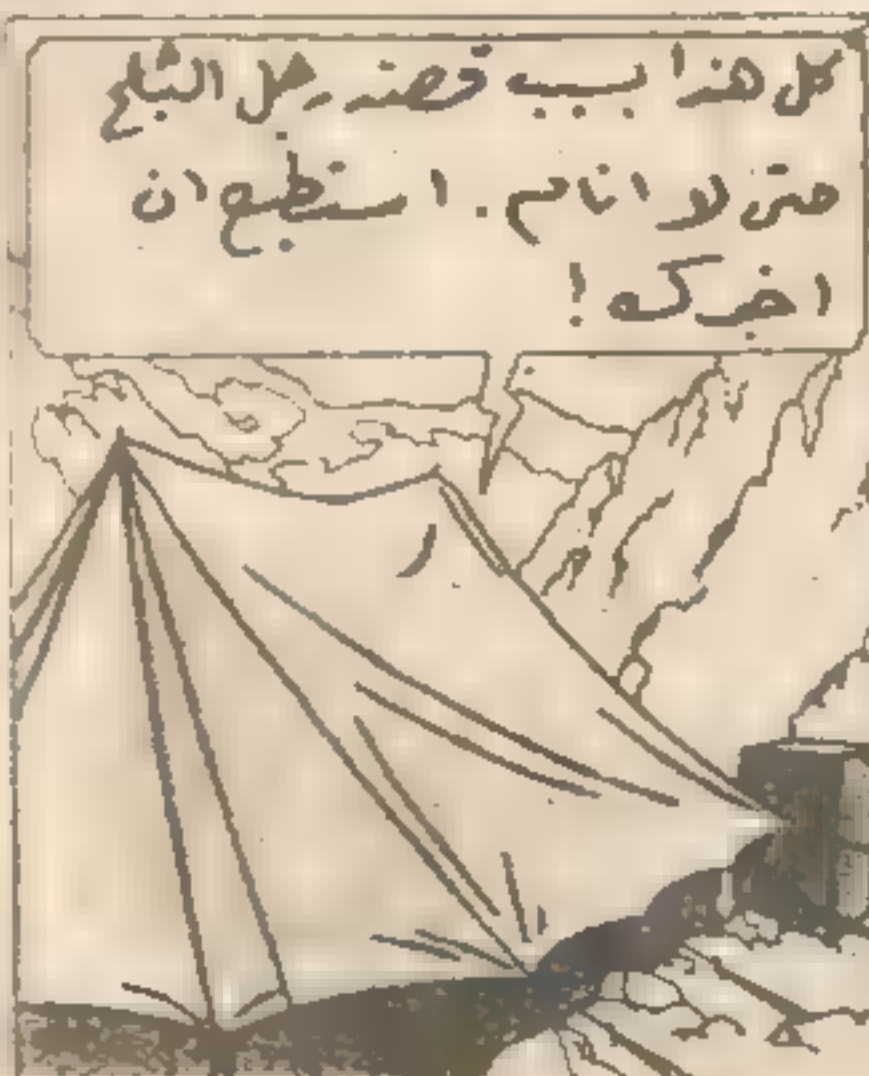 كل هذا بسبب قصة رجل الثلج
حتى لا انام. استطيع ان
اخبركه!